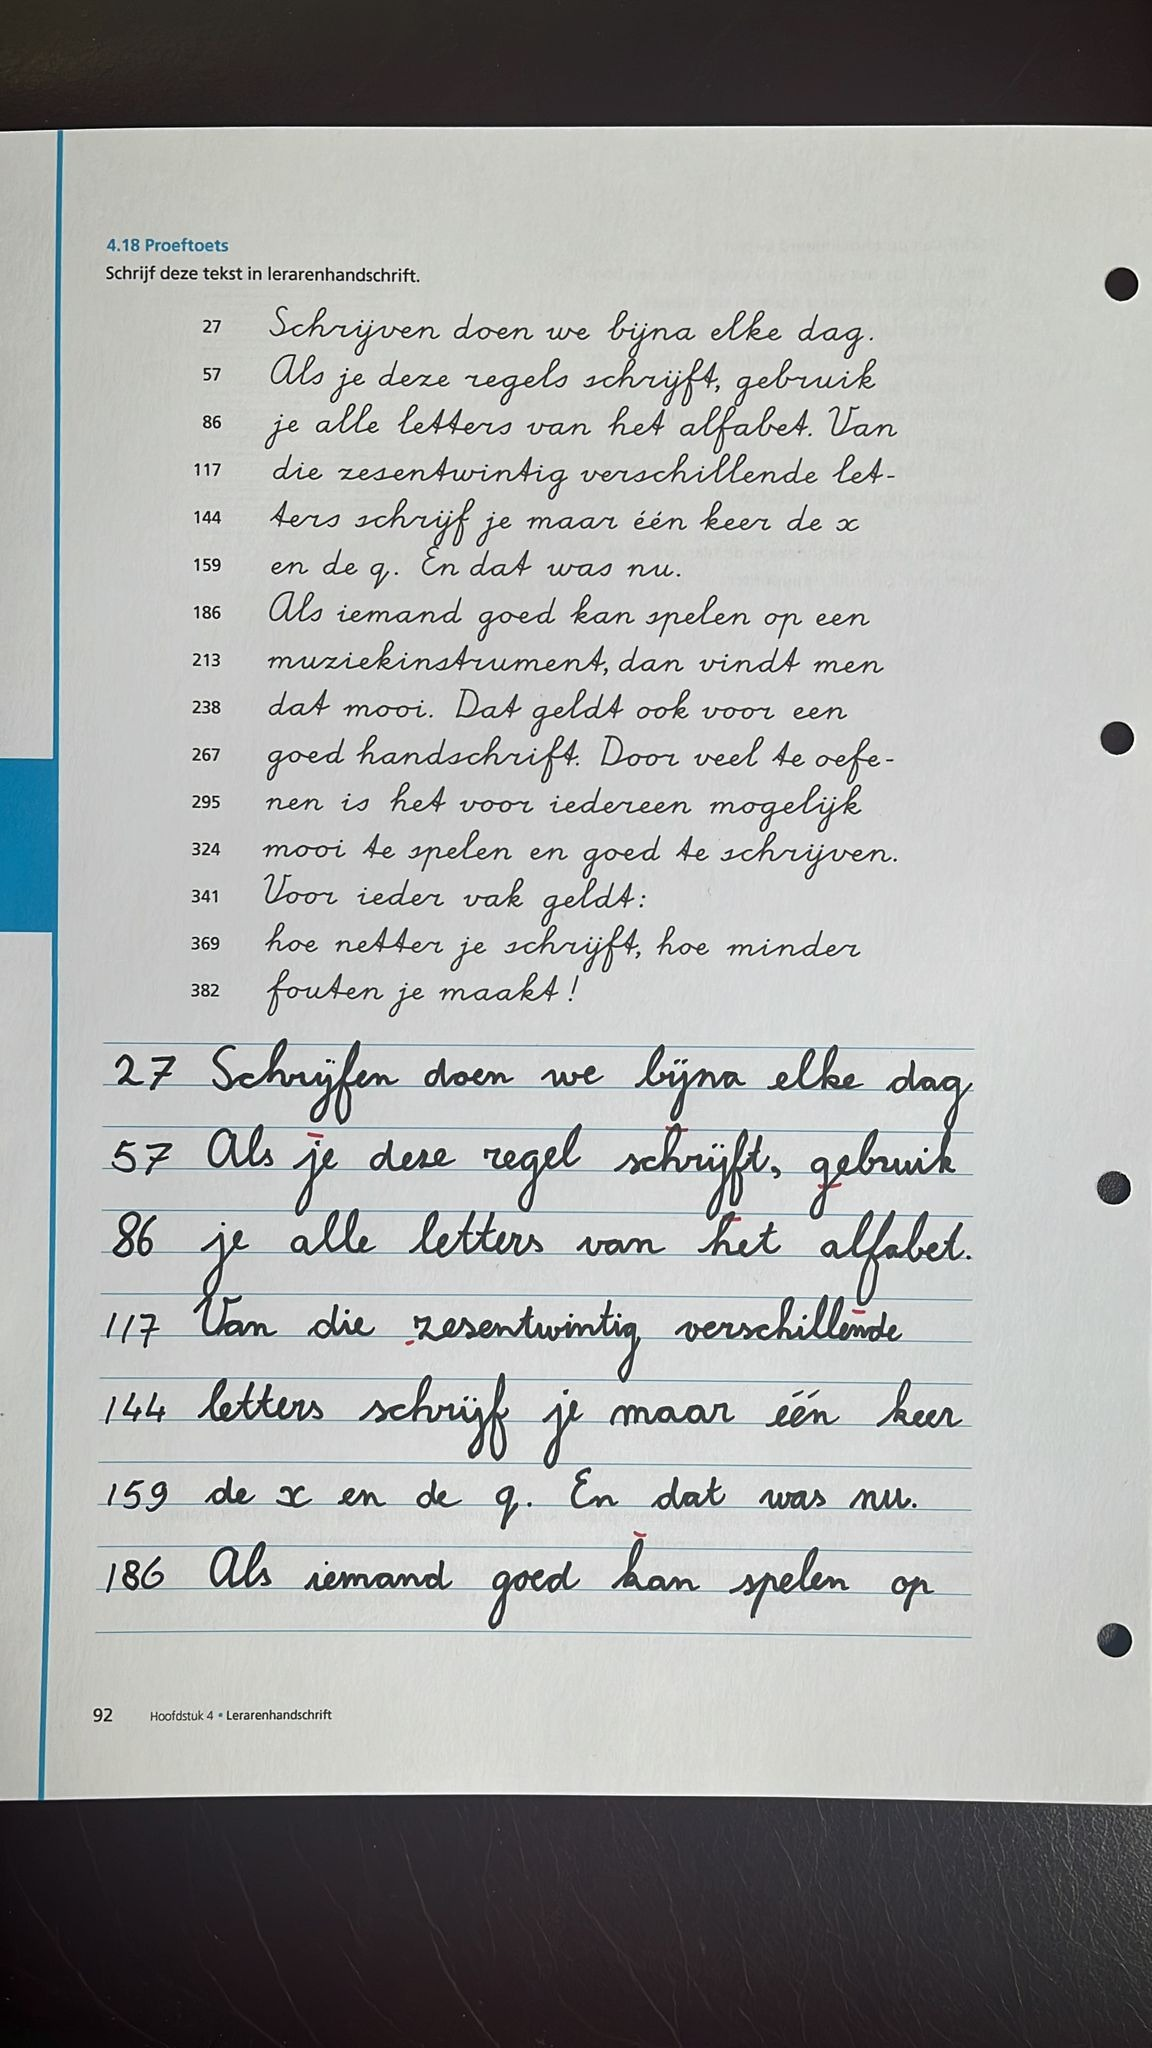 4.18 Proeftoets
Schrijf deze tekst in lerarenhandschrift.
27 Schrijven doen we bijna elke dag.
57 Als je deze regels schrijft, gebruik
86 je alle letters van het alfabet. Van
117 die zesentwintig verschillende let-
144 ters schrijf je maar één keer de x
159 en de q. En dat was nu.
186 Als iemand goed kan spelen op een
213 muziekinstrument, dan vindt men
238 dat mooi. Dat geldt ook voor een
267 goed handschrift. Door veel te oefe-
295 nen is het voor iedereen mogelijk
324 mooi te spelen en goed te schrijven.
341 Voor ieder vak geldt:
369 hoe netter je schrijft, hoe minder
382 fouten je maakt!
27 Schrijfen doen we bijna elke dag
57 Als je deze regel schrijft, gebruik
86 je alle letters van het alfabet.
117 Van die zesentwintig verschillende
144 letters schrijf je maar één keer
159 de x en de q. En dat was nu.
186 Als iemand goed kan spelen op
92 Hoofdstuk 4 • Lerarenhandschrift